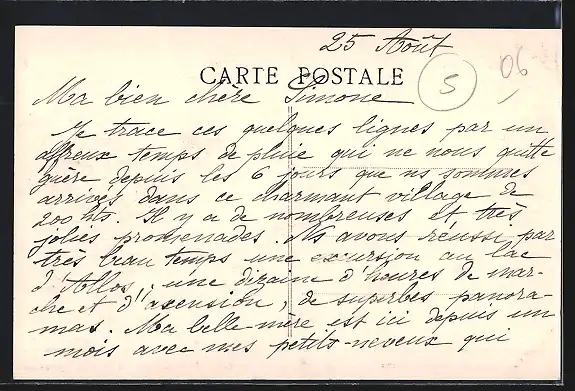 25 Août
06
CARTE POSTALE
S
Ma bien chère Simone,
Je trace ces quelques lignes par un
affreux temps de pluie qui ne nous quitte
guère depuis les 6 jours que ns sommes
arrivés dans ce charmant village de
200 hts. Il y a de nombreuses et très
jolies promenades. Ns avons réussi par
très beau temps une excursion au lac
d'Allos, une dizaine d'heures de mar-
che et d'ascension, de superbes panora-
mas. Ma belle-mère est ici depuis un
mois avec mes petits-neveux qui